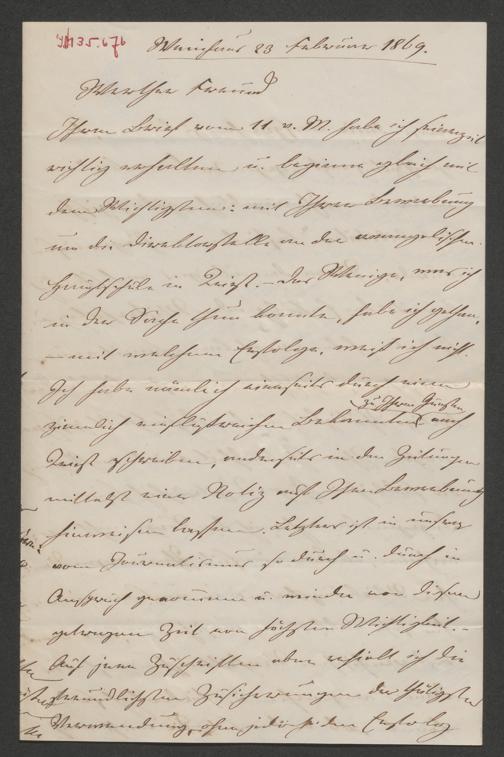 IN 35.676
Weinhaus 23 Februar 1869.
Werther Freund
Ihren Brief vom 11 v. M. habe ich seinerzeit
richtig erhalten u. beginne gleich mit
dem Wichtigsten: mit Ihrer Bewerbung
um die Direktorstelle an der evangelischen
Hauptschule in Triest. – Das Wenige, was ich
in der Sache thun konnte, habe ich gethan,
– mit welchem Erfolge, weiß ich nicht.
Ich habe nämlich einerseits durch einen
ziemlich einflußreichen Bekannten zu Ihren Gunsten nach
Triest schreiben, anderseits in den Zeitungen
mittelst einer Notiz auf Ihre Bewerbung
hinweisen lassen. Letztres ist in unsrer
vom Journalismus so durch u. durch in
Anspruch genommen u. von diesem
Zeit von höchster Wichtigkeit. –
Auf jene Zuschriften aber erhielt ich die
freundlichsten Zusicherungen der thätigsten
Verwendung, ohne jedoch den Erfolg